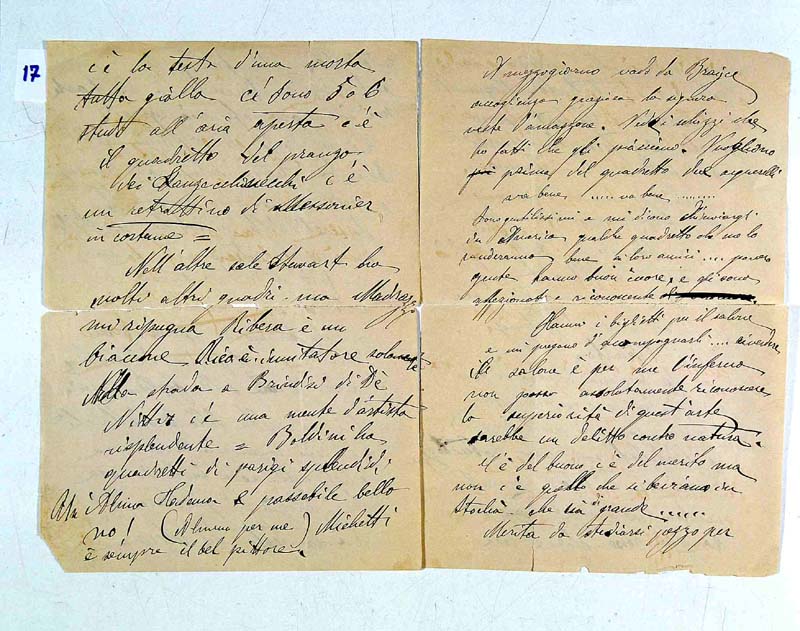 17
c'è la testa d'una morta
tutta gialla ci sono 5 o 6
studi all'aria aperta c'è
il quadretto del pranzo
dei c'è
un retrattino di Messonier
in costume =
Nell'altre sale Stewart ha
molti altri quadri - ma Madrazo
mi ripugna Ribera è un
biacune Rico è imitatore solamente
Nella strada a Brindisi di De
Nittis c'è una mente d'artista
risplendente = Boldini ha
quadretti di parigi splendidi
Alma Tadema è passabile bello
no! (Almeno per me) Michetti
è sempre il bel pittore.
A mezzogiorno vado da
accoglienza graziosa la signora
veste d'amazone. Vede i schizzi che
ho fatti che gli piacciono. Vogliono
più prima del quadretto due aquerelli
va bene ..... va bene .......
Sono gentilissimi e mi dicono d'inviargli
in America qualche quadretto che me lo
venderanno bene ai loro amici .... povera
gente hanno buon cuore, e gli sono
affezionati e riconoscente
Hanno i biglietti per il salone
e mi pregano d'accompagnarli ....
Il salone è per me l'inferno
non posso assolutamente riconoscere
la superiorità di quest'arte
sarebbe un delitto contro natura.
C'è del buono, c'è del merito ma
non c'è quello che si
che sia grande ......
Merita da studiarsi pezzo per